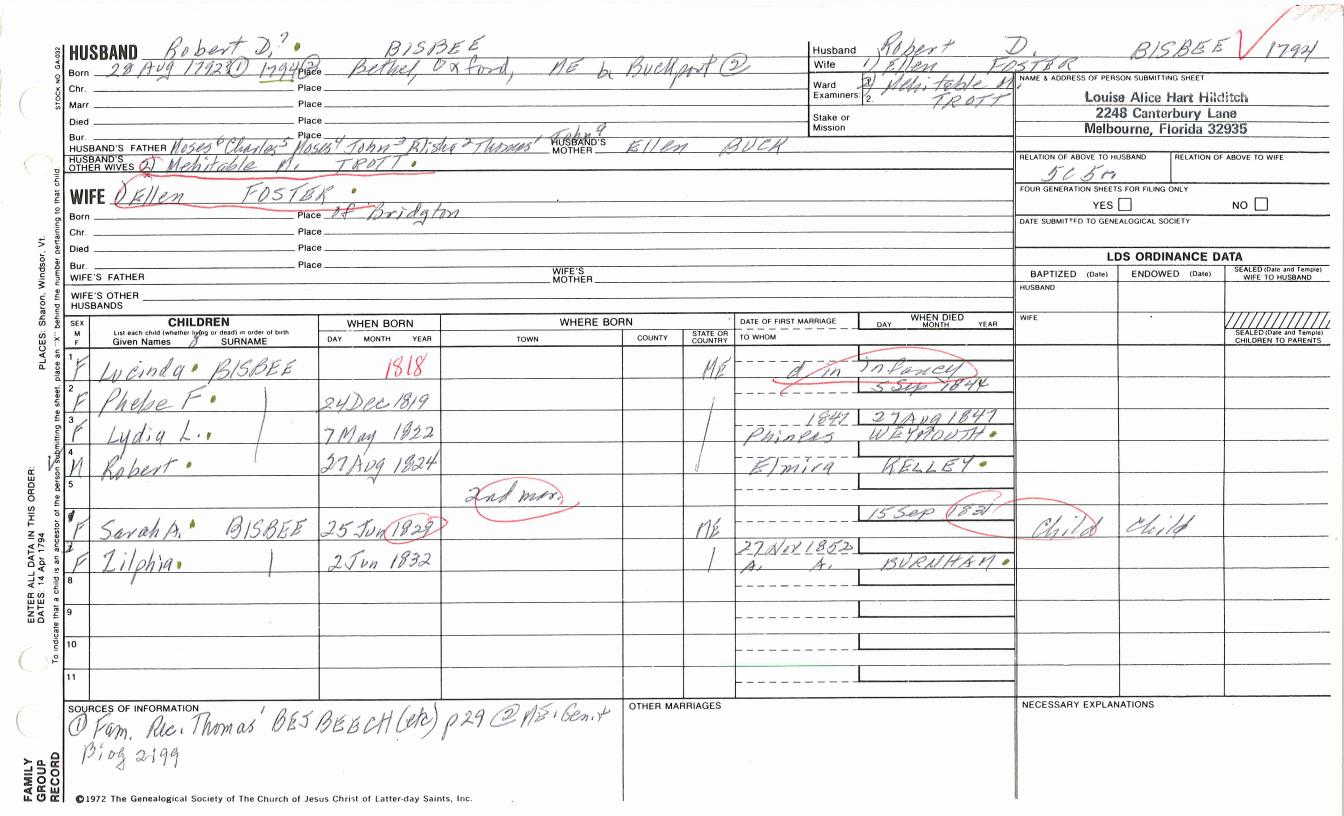 HUSBAND Robert D.? BISBEE
Born 28 Aug 1792 ① 1794 ② Place Bethel, Oxford, ME b. Buckport ②
Chr. Place
Marr Place
Died Place
Bur. Place
HUSBAND'S FATHER Moses⁶ Charles⁵ Moses⁴ John³ Elisha² Thomas¹ HUSBAND'S MOTHER Ellen BUCK
HUSBAND'S OTHER WIVES 2) Mehitable M. TROTT
WIFE 1) Ellen FOSTER
Born Place of Bridgton
Chr Place
Died Place
Bur. Place
WIFE'S FATHER WIFE'S MOTHER
WIFE'S OTHER HUSBANDS
Husband Robert D. BISBEE 1794
Wife 1) Ellen FOSTER
Ward 2) Mehitable M.
Examiners 2. TROTT
Stake or Mission
NAME & ADDRESS OF PERSON SUBMITTING SHEET
Louise Alice Hart Hilditch
2248 Canterbury Lane
Melbourne, Florida 32935
RELATION OF ABOVE TO HUSBAND RELATION OF ABOVE TO WIFE
5C5R
FOUR GENERATION SHEETS FOR FILING ONLY
YES NO
DATE SUBMITTED TO GENEALOGICAL SOCIETY
LDS ORDINANCE DATA
BAPTIZED (Date) ENDOWED (Date) SEALED (Date and Temple) WIFE TO HUSBAND
HUSBAND
WIFE
SEALED (Date and Temple) CHILDREN TO PARENTS
SEX M F
CHILDREN
List each child (whether living or dead) in order of birth
Given Names SURNAME
WHEN BORN
DAY MONTH YEAR
WHERE BORN
TOWN COUNTY STATE OR COUNTRY
DATE OF FIRST MARRIAGE
TO WHOM
WHEN DIED
DAY MONTH YEAR
1 F Lucinda BISBEE 1818 ME d in infancy
2 F Phebe F. 24 Dec 1819 5 Sep 1844
3 F Lydia L. 7 May 1822 1842 27 Aug 1847
Phineas WEYMOUTH
4 M Robert 27 Aug 1824 Elmira KELLEY
5 2nd mar.
1 F Sarah A. BISBEE 25 Jun 1829 ME 15 Sep 1831 Child Child
2 F Zilphia 2 Jun 1832 27 Nov 1852
A. A. BURNHAM
8
9
10
11
SOURCES OF INFORMATION
① Fam. Rec. Thomas¹ BESBEECH (etc) p29 ② ME. Gen. +
Biog 2199
OTHER MARRIAGES
NECESSARY EXPLANATIONS
©1972 The Genealogical Society of The Church of Jesus Christ of Latter-day Saints, Inc.
STOCK NO. GA/032
To indicate that a child is an ancestor of the person submitting the sheet, place an "X" behind the number pertaining to that child
PLACES: Sharon, Windsor, Vt.
ENTER ALL DATA IN THIS ORDER:
DATES 14 Apr 1794
FAMILY GROUP RECORD